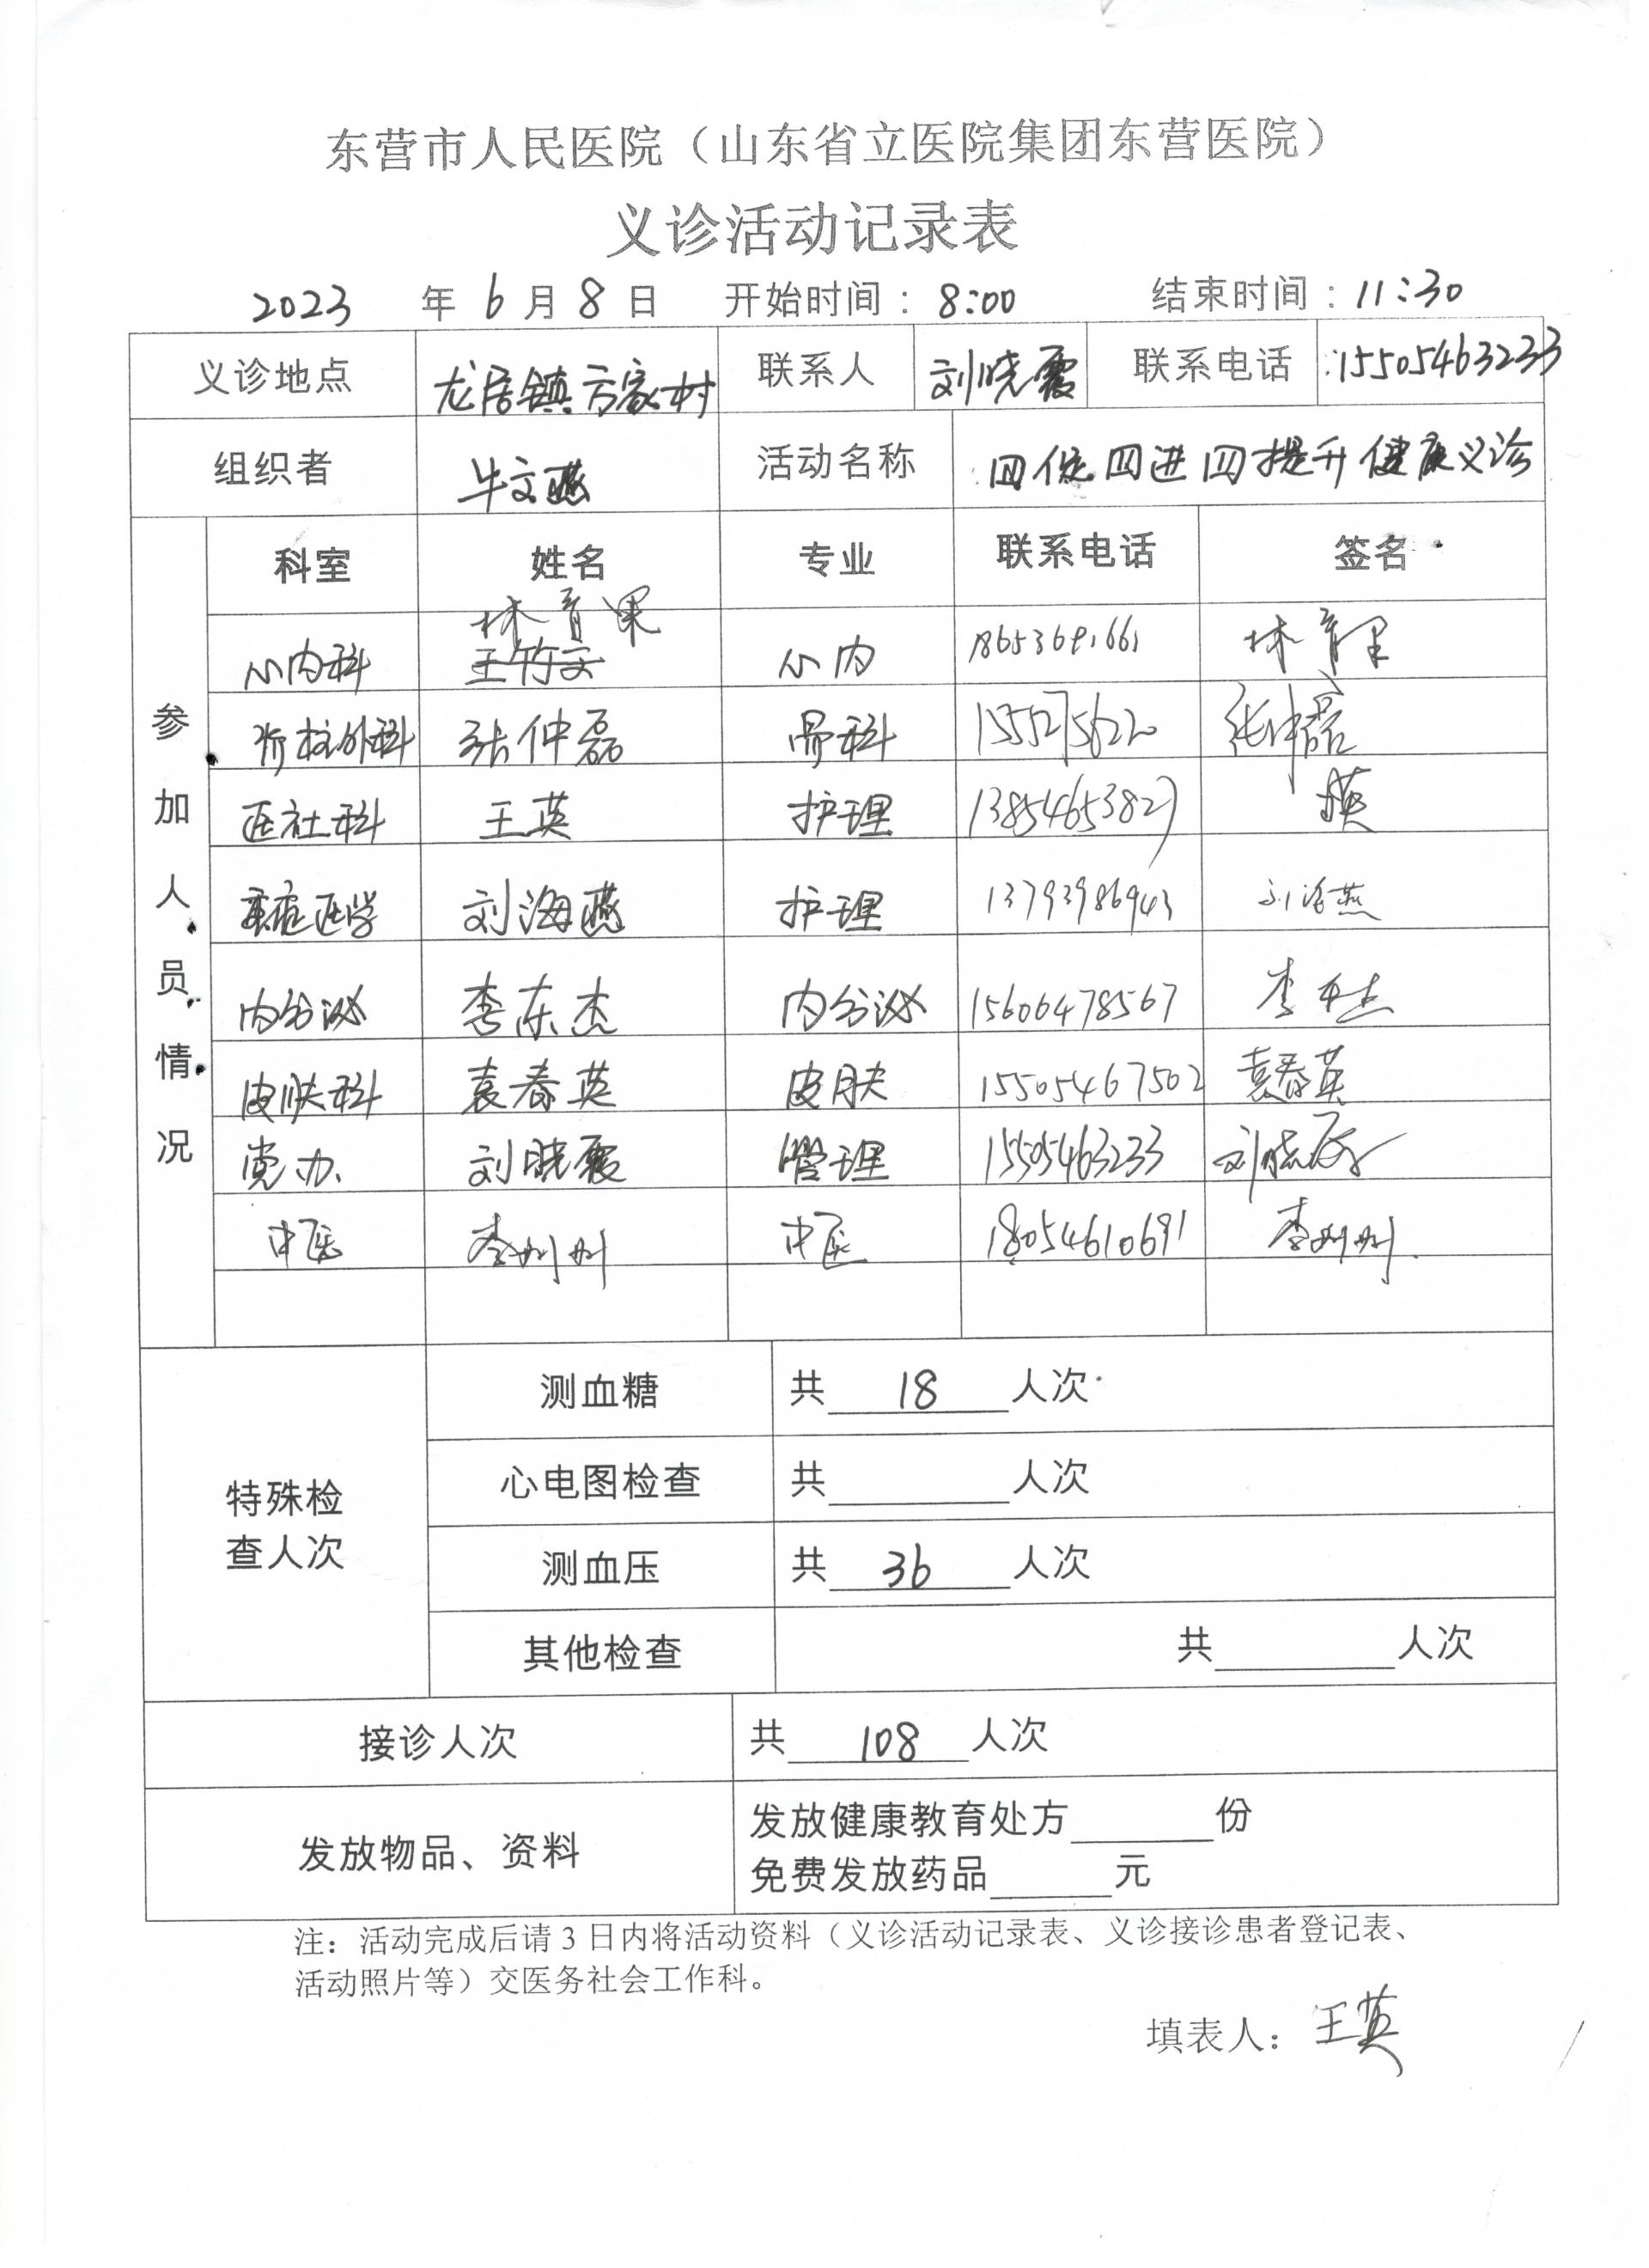 东营市人民医院（山东省立医院集团东营医院）
义诊活动记录表
2023 年 6 月 8 日 开始时间：8:00 结束时间：11:30
义诊地点 龙居镇方家村 联系人 刘晓霞 联系电话 :15505463233
组织者 牛文燕 活动名称 四促四进四提升健康义诊
参加人员情况
科室 姓名 专业 联系电话 签名
林育果
心内科 王竹云 心内 林育果
脊柱外科 张仲磊 骨科 张仲磊
医社科 王英 护理 13854653827 王英
重症医学 刘海燕 护理 13793986943 刘海燕
内分泌 李东杰 内分泌 15606478567 李东杰
皮肤科 袁春英 皮肤 15505467502 袁春英
党办 刘晓霞 管理 15505463233 刘晓霞
中医 李刚刚 中医 18054610691 李刚刚
特殊检查人次
测血糖 共 18 人次
心电图检查 共 人次
测血压 共 36 人次
其他检查 共 人次
接诊人次 共 108 人次
发放物品、资料
发放健康教育处方 份
免费发放药品 元
注：活动完成后请 3 日内将活动资料（义诊活动记录表、义诊接诊患者登记表、
活动照片等）交医务社会工作科。
填表人：王英